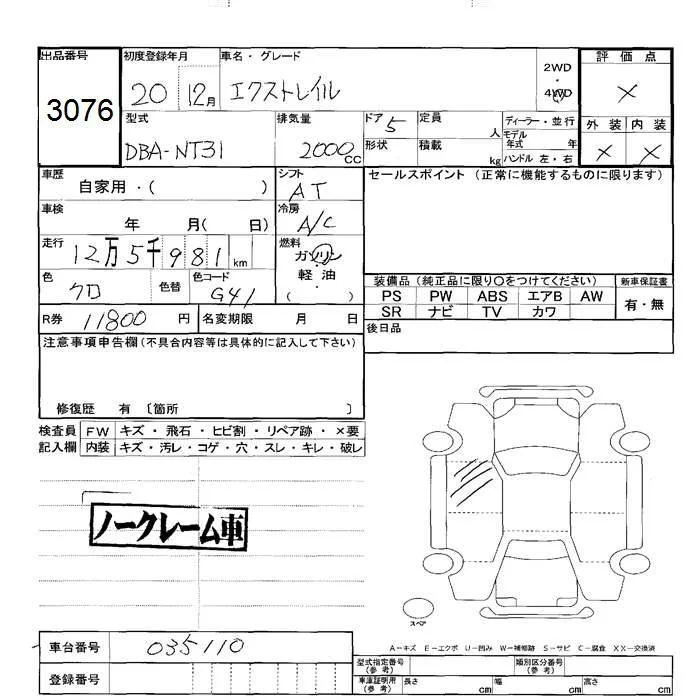 出品番号
3076
初度登録年月
20 12月
車名・グレード
エクストレイル
2WD
・
4WD
評価点
×
外装 内装
× ×
型式
DBA-NT31
排気量
2000 cc
ドア 5
形状
定員 人
積載 kg
ディーラー・並行
モデル年式 年
ハンドル 左・右
車歴
自家用・( )
シフト
AT
セールスポイント (正常に機能するものに限ります)
車検
年 月( 日)
冷房
A/C
走行
12万5千981km
燃料
ガソリン
・
軽油
( )
色
クロ
色替
色コード
G41
装備品 (純正品に限り〇をつけてください)
新車保証書
PS PW ABS エアB AW
SR ナビ TV カワ
有・無
R券 11800 円
名変期限 月 日
後日品
注意事項申告欄(不具合内容等は具体的に記入して下さい)
修復歴 有 〔箇所 〕
検査員記入欄
FW キズ・飛石・ヒビ割・リペア跡・×要
内装 キズ・汚レ・コゲ・穴・スレ・キレ・破レ
ノークレーム車
スペア
A-キズ E-エクボ U-凹み W-補修跡 S-サビ C-腐食 XX-交換済
車台番号 035110
登録番号
型式指定番号(参考)
類別区分番号(参考)
車庫証明用(参考)
長さ cm 幅 cm 高さ cm